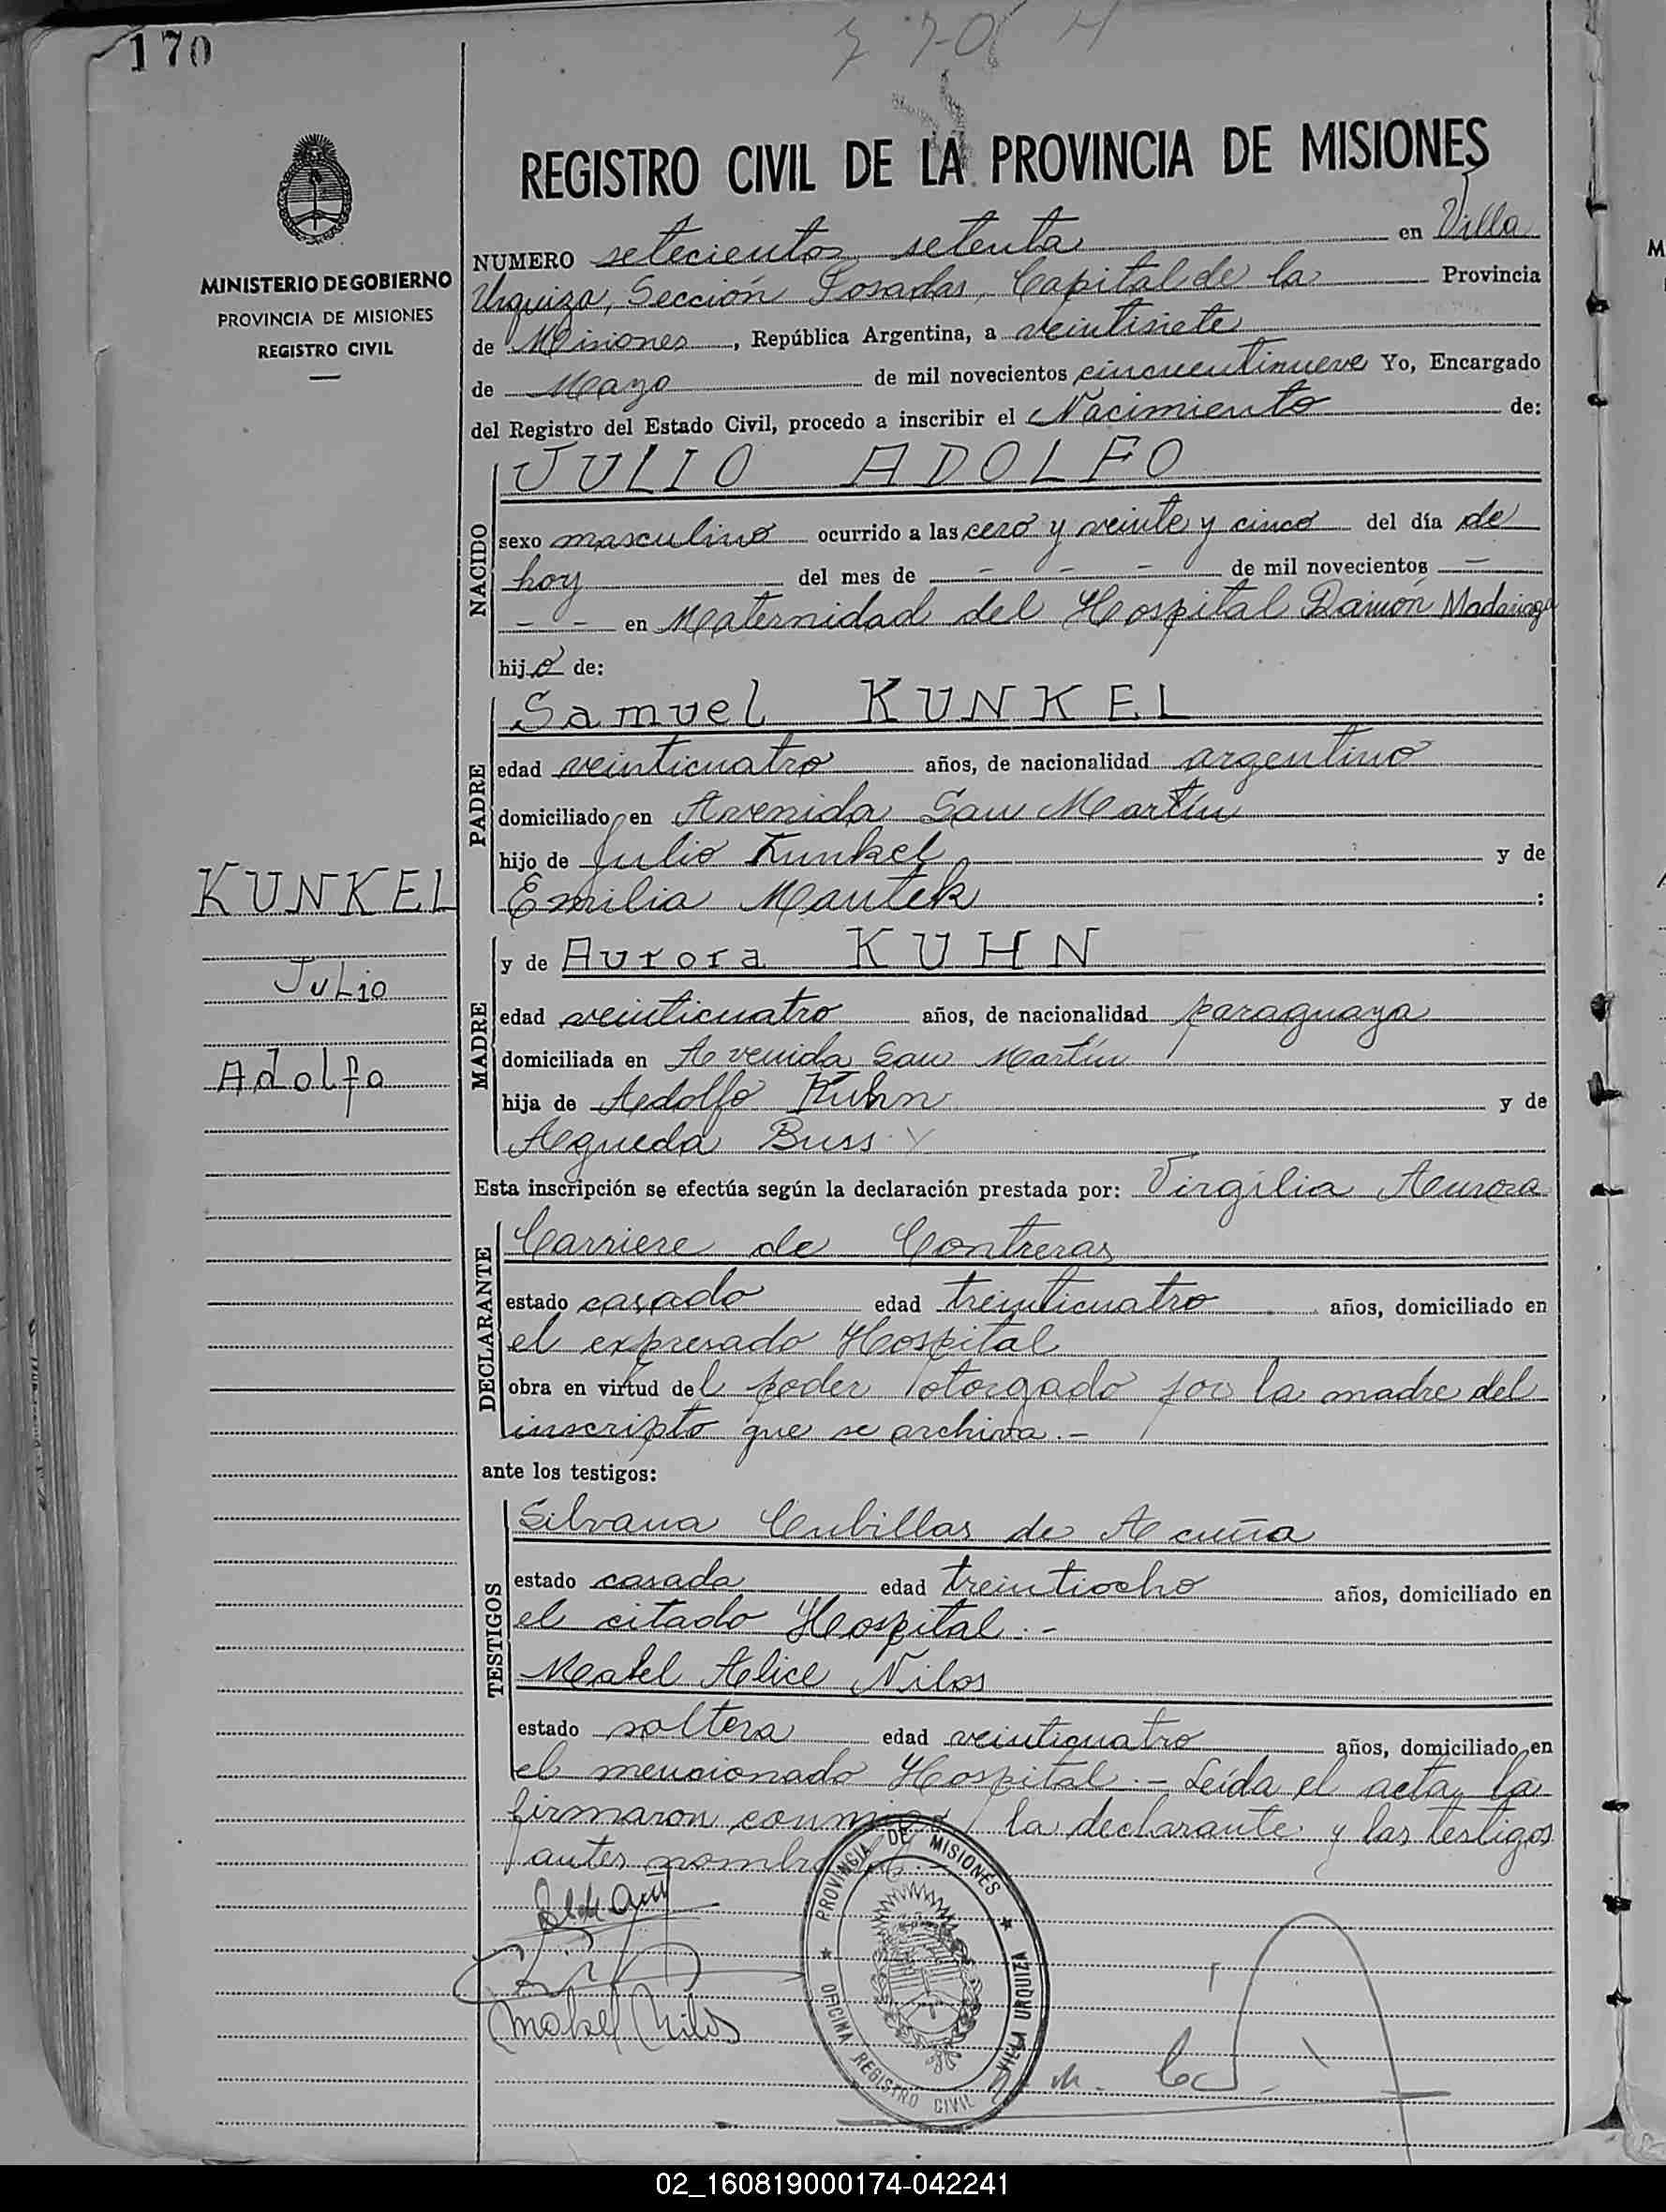 170
770
REGISTRO CIVIL DE LA PROVINCIA DE MISIONES
MINISTERIO DE GOBIERNO
PROVINCIA DE MISIONES
REGISTRO CIVIL
NUMERO setecientos setenta en Villa
Urquiza, Sección Posadas, Capital de la Provincia
de Misiones, República Argentina, a veintisiete
de Mayo de mil novecientos cincuentinueve Yo, Encargado
del Registro del Estado Civil, procedo a inscribir el Nacimiento de:
NACIDO
JULIO ADOLFO
sexo masculino ocurrido a las cero y veinte y cinco del día de
hoy del mes de - - - de mil novecientos -
- - en Maternidad del Hospital Ramón Madariaga
hijo de:
PADRE
Samuel KUNKEL
edad veinticuatro años, de nacionalidad argentino
domiciliado en Avenida San Martín
hijo de Julio Kunkel y de
Emilia Mantek :
KUNKEL
Julio
Adolfo
MADRE
y de Aurora KUHN
edad veinticuatro años, de nacionalidad paraguaya
domiciliada en Avenida San Martín
hija de Adolfo Kuhn y de
Agueda Buss
Esta inscripción se efectúa según la declaración prestada por: Virgilia Aurora
DECLARANTE
Carriere de Contreras
estado casado edad treinticuatro años, domiciliado en
el expresado Hospital
obra en virtud del poder otorgado por la madre del
inscripto que se archiva.-
ante los testigos:
TESTIGOS
Silvana Cubillas de Acuña
estado casada edad treintiocho años, domiciliado en
el citado Hospital.-
Mabel Alice Nilos
estado soltera edad veinticuatro años, domiciliado en
el mencionado Hospital.- Leída el acta, la
firmaron conmigo la declarante y las testigos
antes
PROVINCIA DE MISIONES
OFICINA REGISTRO CIVIL VILLA URQUIZA
Mabel Nilos
02_160819000174-042241